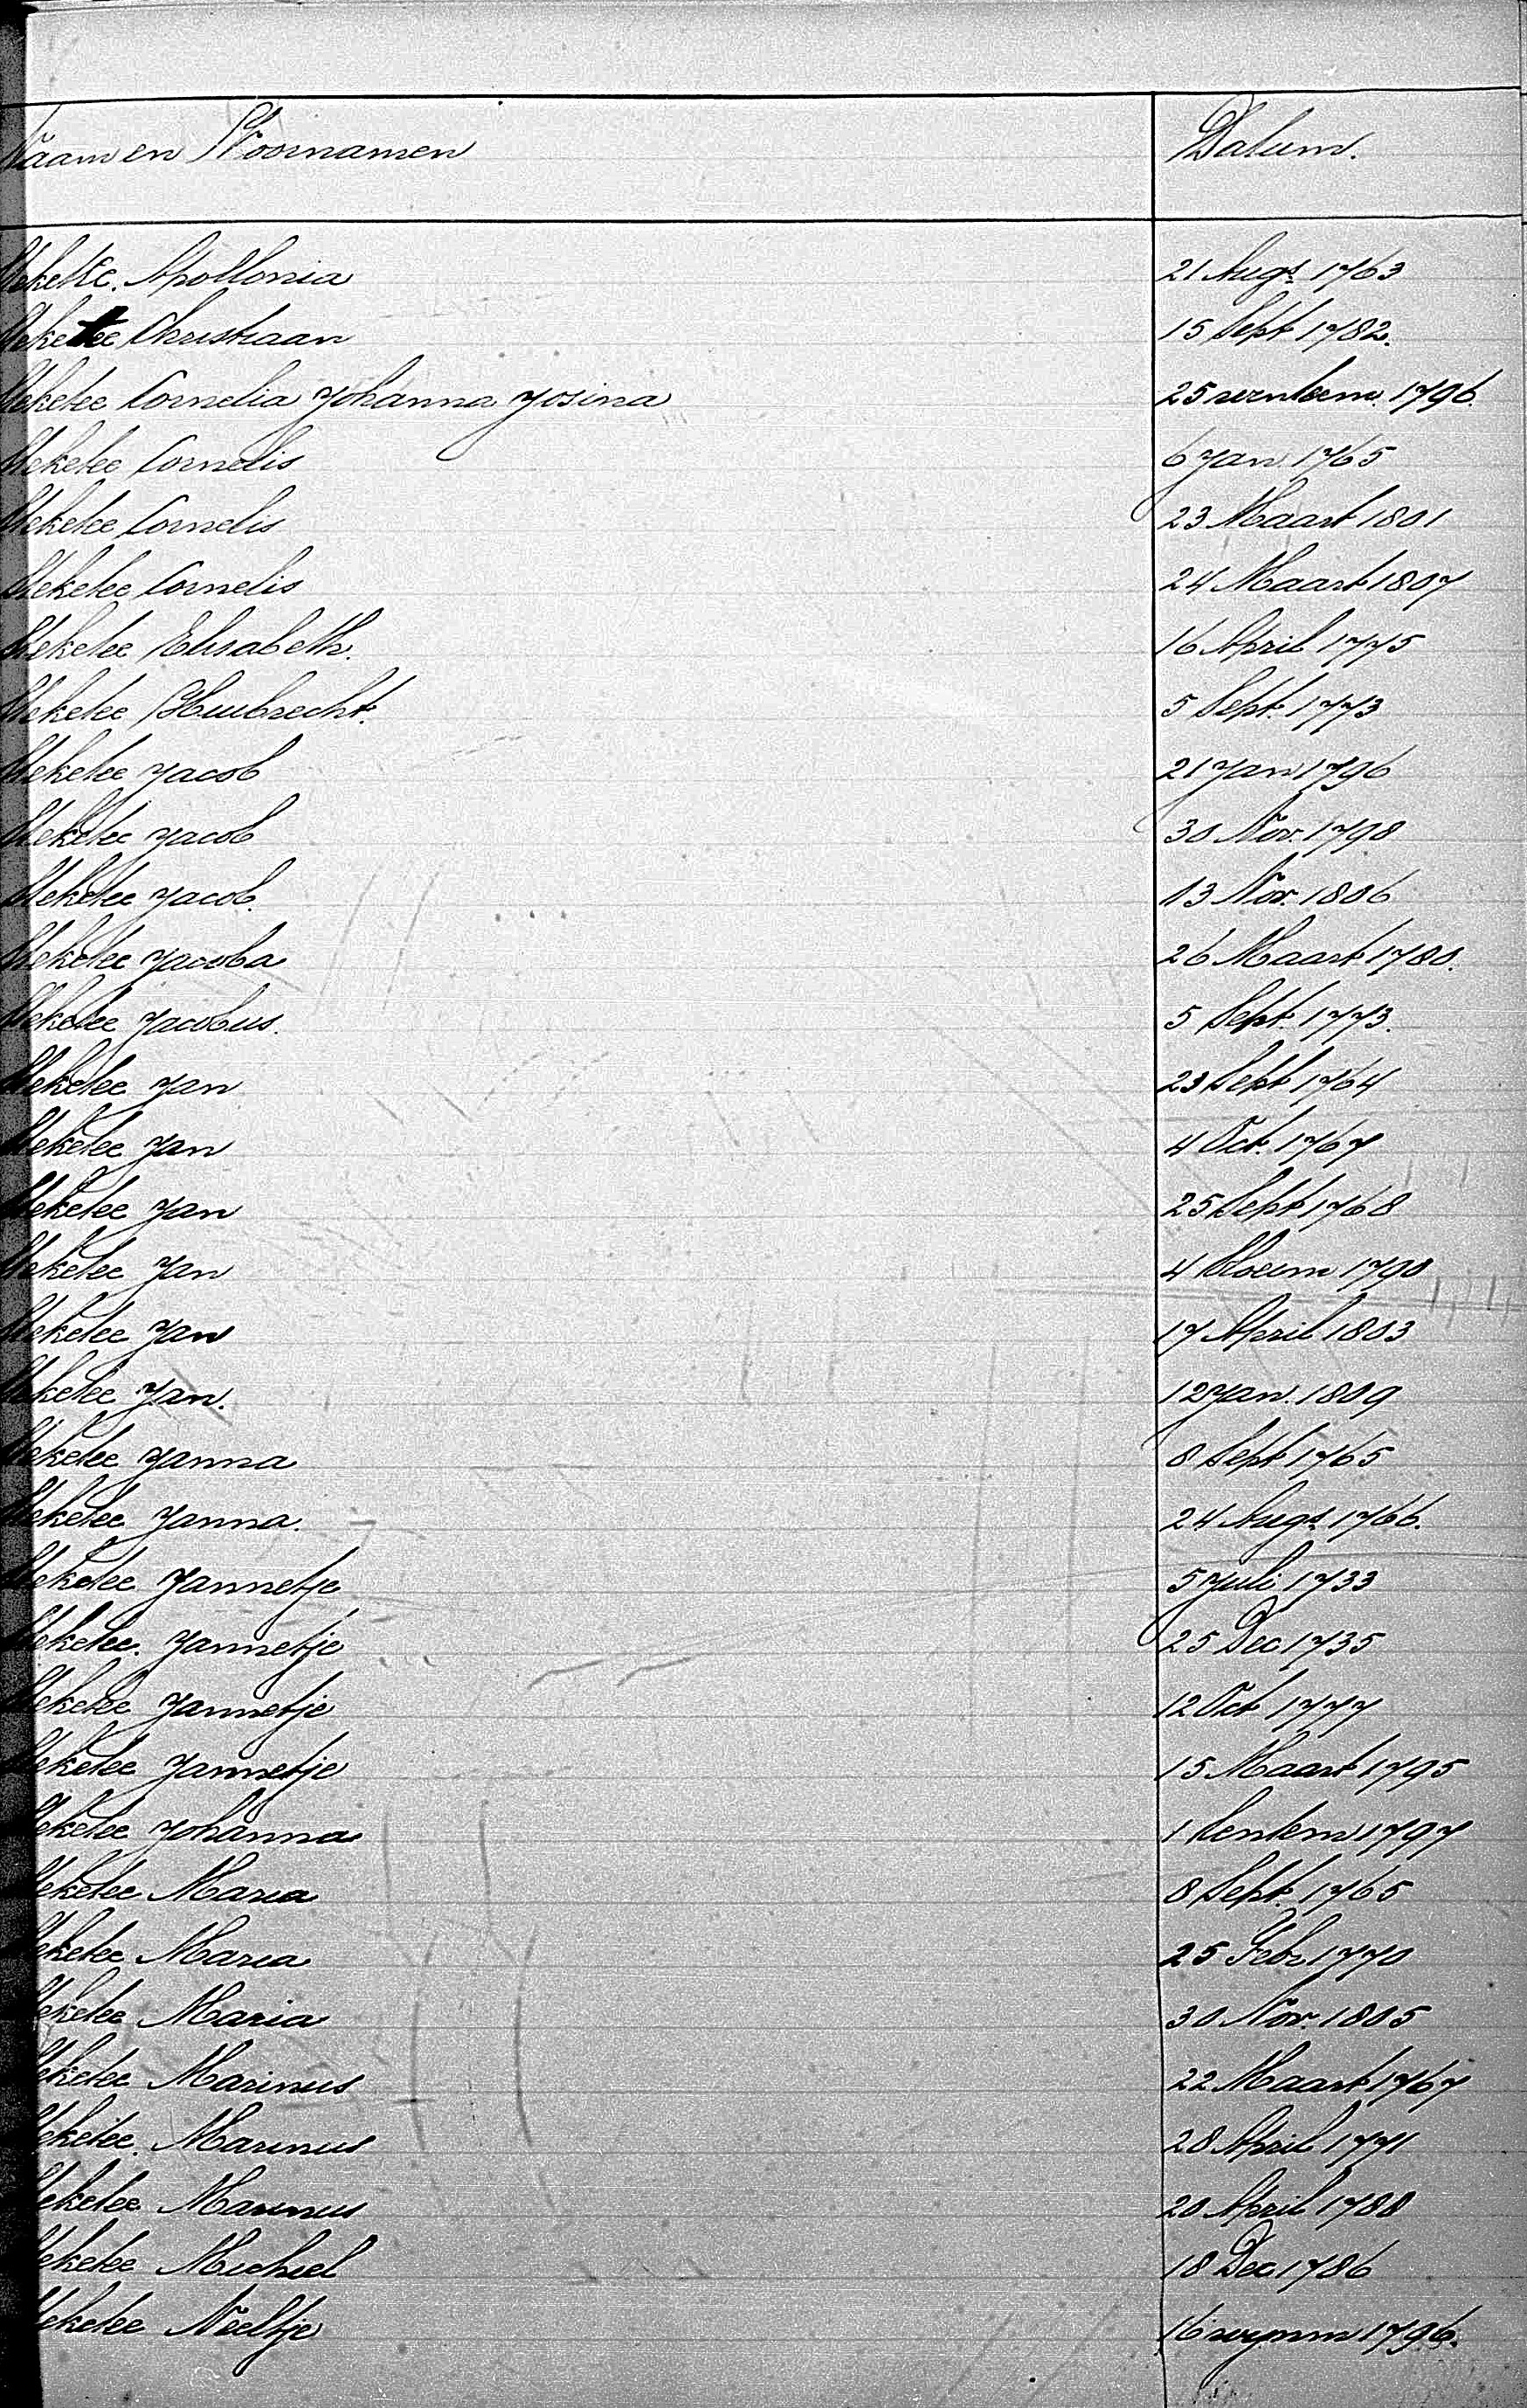 Naam en Voornamen Datum.
Mekelee. Apollonia 21 Augs. 1763
Meketee Christiaan 15 Sept 1782.
Meketee Cornelia Johanna Josina 25 wentoem. 1796.
Meketee Cornelis 6 Jan 1765
Meketee Cornelis 23 Maart 1801
Meketee Cornelis 24 Maart 1807
Meketee Elisabeth. 16 April 1775
Meketee Huibrecht. 5 Sept. 1773
Meketee Jacob 21 Jan 1796
Meketee Jacob 30 Nov. 1798
Meketee Jacob. 13 Nov. 1806
Meketee Jacoba 26 Maart 1780.
Meketee Jacobus. 5 Sept. 1773.
Meketee Jan 23 Sept 1764
Meketee Jan 4 Oct. 1767
Meketee Jan 25 Sept 1768
Meketee Jan 4 bloeim 1798
Meketee Jan 17 April 1803
Meketee Jan. 12 Jan. 1809
Meketee Janna 8 Sept 1765
Meketee Janna. 24 Augs. 1766.
Meketee Jannetje 5 Juli 1733
Meketee. Jannetje 25 Dec 1735
Meketee Jannetje 12 Oct 1777
Meketee Jannetje 15 Maart 1795
Meketee Johanna 1 lentem 1797
Meketee Maria 8 Sept. 1765
Meketee Maria 25 Febr 1770
Meketee Maria 30 Nov. 1805
Meketee Marinus 22 Maart 1767
Meketee. Marinus 28 April 1771
Meketee Marinus 20 April 1788
Meketee Michiel 18 Dec 1786
Meketee Neeltje 16 wynm 1796.